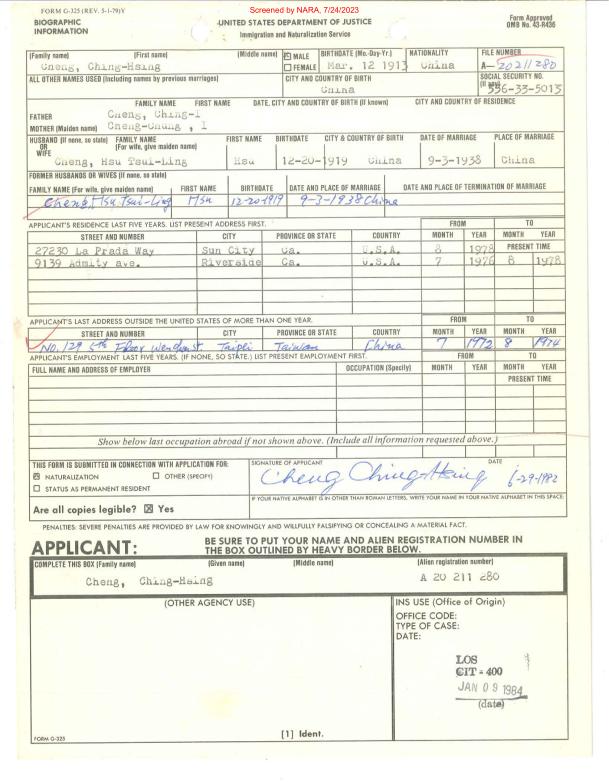 Screened by NARA, 7/24/2023
FORM G-325 (REV. 5-1-79)Y
BIOGRAPHIC INFORMATION
UNITED STATES DEPARTMENT OF JUSTICE
Immigration and Naturalization Service
Form Approved
OMB No. 43-R436
(Family name) (First name) (Middle name) ☒ MALE ☐ FEMALE BIRTHDATE (Mo.-Day-Yr.) NATIONALITY FILE NUMBER
Cheng, Ching-Hsing Mar. 12 1913 China A—20211280
ALL OTHER NAMES USED (Including names by previous marriages) CITY AND COUNTRY OF BIRTH SOCIAL SECURITY NO. (If any)
China 556-33-5013
FAMILY NAME FIRST NAME DATE, CITY AND COUNTRY OF BIRTH (If known) CITY AND COUNTRY OF RESIDENCE
FATHER Cheng, Ching-I
MOTHER (Maiden name) Cheng-Chung , I
HUSBAND (If none, so state) OR WIFE FAMILY NAME (For wife, give maiden name) FIRST NAME BIRTHDATE CITY & COUNTRY OF BIRTH DATE OF MARRIAGE PLACE OF MARRIAGE
Cheng, Hsu Tsui-Ling Hsu 12-20-1919 China 9-3-1938 China
FORMER HUSBANDS OR WIVES (If none, so state)
FAMILY NAME (For wife, give maiden name) FIRST NAME BIRTHDATE DATE AND PLACE OF MARRIAGE DATE AND PLACE OF TERMINATION OF MARRIAGE
Cheng, Hsu Tsui-Ling Hsu 12-20-1919 9-3-1938 China
APPLICANT'S RESIDENCE LAST FIVE YEARS. LIST PRESENT ADDRESS FIRST. FROM TO
STREET AND NUMBER CITY PROVINCE OR STATE COUNTRY MONTH YEAR MONTH YEAR
27230 La Prada Way Sun City Ca. U.S.A. 8 1978 PRESENT TIME
9139 Admity ave. Riverside Ca. U.S.A. 7 1976 8 1978
APPLICANT'S LAST ADDRESS OUTSIDE THE UNITED STATES OF MORE THAN ONE YEAR. FROM TO
STREET AND NUMBER CITY PROVINCE OR STATE COUNTRY MONTH YEAR MONTH YEAR
No. 129 5th Floor st. Taipei Taiwan China 7 1972 8 1974
APPLICANT'S EMPLOYMENT LAST FIVE YEARS. (IF NONE, SO STATE.) LIST PRESENT EMPLOYMENT FIRST. FROM TO
FULL NAME AND ADDRESS OF EMPLOYER OCCUPATION (Specify) MONTH YEAR MONTH YEAR
PRESENT TIME
Show below last occupation abroad if not shown above. (Include all information requested above.)
THIS FORM IS SUBMITTED IN CONNECTION WITH APPLICATION FOR: SIGNATURE OF APPLICANT DATE
☒ NATURALIZATION ☐ OTHER (SPECIFY) Cheng Ching-Hsing 6-29-1982
☐ STATUS AS PERMANENT RESIDENT
IF YOUR NATIVE ALPHABET IS IN OTHER THAN ROMAN LETTERS, WRITE YOUR NAME IN YOUR NATIVE ALPHABET IN THIS SPACE:
Are all copies legible? ☒ Yes
PENALTIES: SEVERE PENALTIES ARE PROVIDED BY LAW FOR KNOWINGLY AND WILLFULLY FALSIFYING OR CONCEALING A MATERIAL FACT.
APPLICANT: BE SURE TO PUT YOUR NAME AND ALIEN REGISTRATION NUMBER IN THE BOX OUTLINED BY HEAVY BORDER BELOW.
COMPLETE THIS BOX (Family name) (Given name) (Middle name) (Alien registration number)
Cheng, Ching-Hsing A 20 211 280
(OTHER AGENCY USE) INS USE (Office of Origin)
OFFICE CODE:
TYPE OF CASE:
DATE:
LOS
CIT - 400
JAN 09 1984
(date)
[1] Ident.
FORM G-325